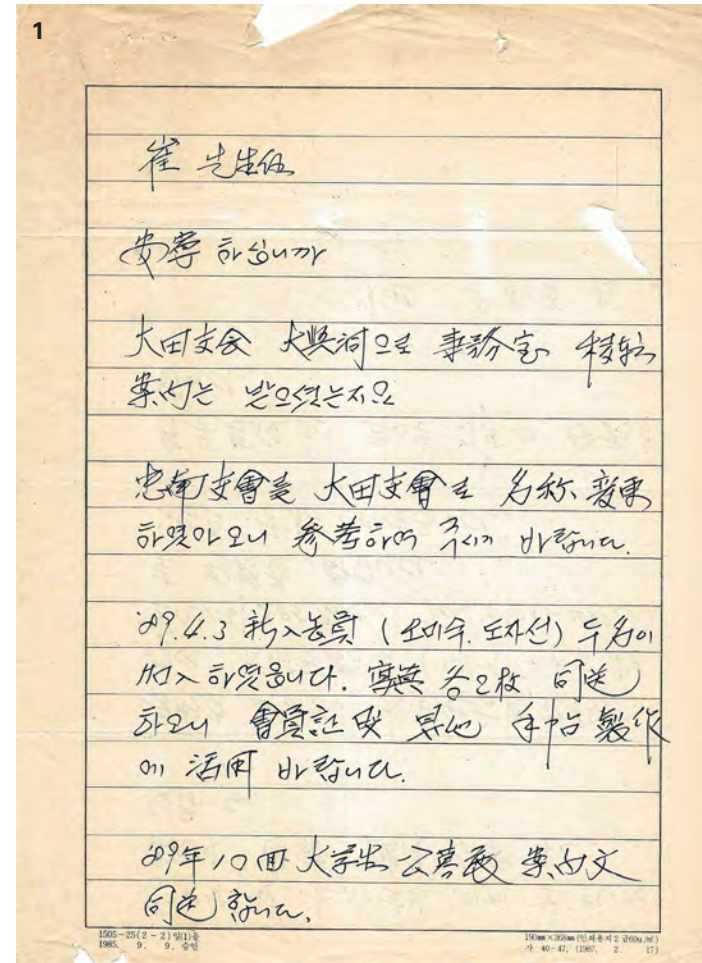 1
崔 先生任
安寧 하십니까
大田支会 大興洞으로 事務室 移転
案内는 받으셨는지요
忠南支會를 大田支會로 名称 変更
하였아오니 參考하여 주시기 바랍니다.
'89.4.3 新入会員 (오미숙. 도자선) 두名이
加入 하였읍니다. 寫眞 各 2枚 同送
하오니 會員証 및 其他 手帖 製作
에 活用 바랍니다.
'89年 10回 大学生 公募展 案内文
同送 합니다.
1505-25(2-2) 일(1)용
1985. 9. 9. 승인
190㎜×268㎜(인쇄용지 2급60g/㎡)
가 40-47. (1987. 2. 17)